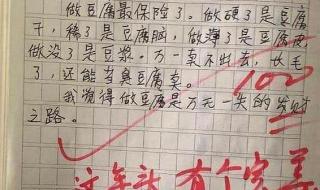 做豆腐最保险了。做硬了是豆腐
干，稀了是豆腐脑，做薄了是豆腐皮
做没了是豆浆。万一卖不出去，长毛
了，还能当臭豆腐卖。
100
我觉得做豆腐是万无一失的发财
之路。
这年头 有个完美